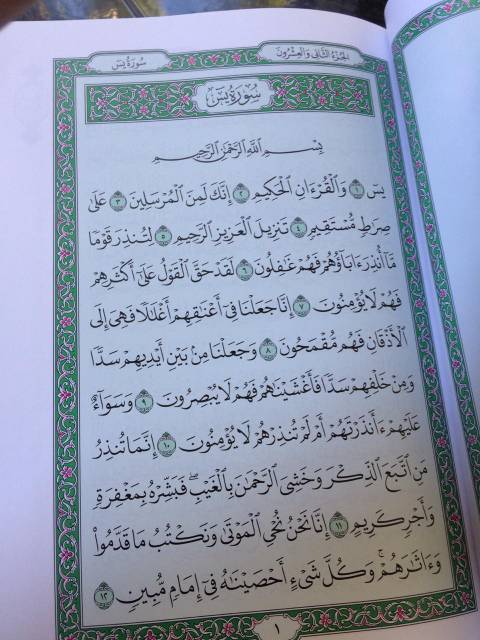 سُورَةُ يسٓ
الجُزءُ الثَّانِي وَالعِشْرُونَ
سُورَةُ يسٓ
بِسْمِ ٱللَّهِ ٱلرَّحْمَٰنِ ٱلرَّحِيمِ
يسٓ ١ وَٱلْقُرْءَانِ ٱلْحَكِيمِ ٢ إِنَّكَ لَمِنَ ٱلْمُرْسَلِينَ ٣ عَلَىٰ
صِرَٰطٍ مُّسْتَقِيمٍ ٤ تَنزِيلَ ٱلْعَزِيزِ ٱلرَّحِيمِ ٥ لِتُنذِرَ قَوْمًا
مَّآ أُنذِرَ ءَابَآؤُهُمْ فَهُمْ غَٰفِلُونَ ٦ لَقَدْ حَقَّ ٱلْقَوْلُ عَلَىٰٓ أَكْثَرِهِمْ
فَهُمْ لَا يُؤْمِنُونَ ٧ إِنَّا جَعَلْنَا فِىٓ أَعْنَٰقِهِمْ أَغْلَٰلًا فَهِىَ إِلَى
ٱلْأَذْقَانِ فَهُم مُّقْمَحُونَ ٨ وَجَعَلْنَا مِنۢ بَيْنِ أَيْدِيهِمْ سَدًّا
وَمِنْ خَلْفِهِمْ سَدًّا فَأَغْشَيْنَٰهُمْ فَهُمْ لَا يُبْصِرُونَ ٩ وَسَوَآءٌ
عَلَيْهِمْ ءَأَنذَرْتَهُمْ أَمْ لَمْ تُنذِرْهُمْ لَا يُؤْمِنُونَ ١٠ إِنَّمَا تُنذِرُ
مَنِ ٱتَّبَعَ ٱلذِّكْرَ وَخَشِىَ ٱلرَّحْمَٰنَ بِٱلْغَيْبِ ۖ فَبَشِّرْهُ بِمَغْفِرَةٍ
وَأَجْرٍ كَرِيمٍ ١١ إِنَّا نَحْنُ نُحْىِ ٱلْمَوْتَىٰ وَنَكْتُبُ مَا قَدَّمُوا۟
وَءَاثَٰرَهُمْ ۚ وَكُلَّ شَىْءٍ أَحْصَيْنَٰهُ فِىٓ إِمَامٍ مُّبِينٍ ١٢
١